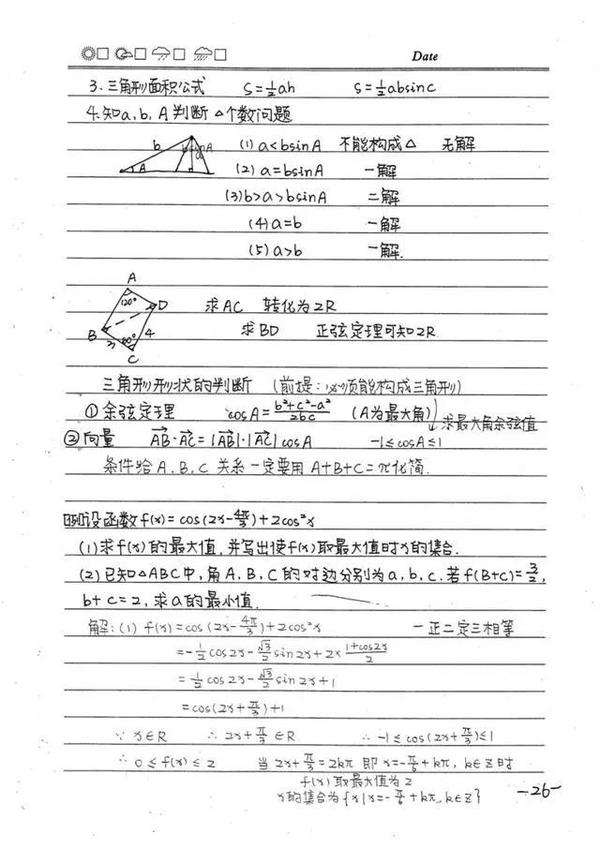 Date
3.三角形面积公式 S=½ah S=½absinC
4.知a,b,A判断△个数问题
b A a
(1) a<bsinA 不能构成△ 无解
(2) a=bsinA 一解
(3) b>a>bsinA 二解
(4) a=b 一解
(5) a>b 一解.
A 120° D B 60° 3 4 C
求AC 转化为2R
求BD 正弦定理可知2R
三角形形状的判断 (前提:必须能构成三角形)
①余弦定理 cosA=(b²+c²-a²)/2bc (A为最大角) ↓求最大角余弦值
②向量 AB·AC=|AB|·|AC|cosA -1≤cosA≤1
条件给A.B.C关系一定要用A+B+C=π化简.
例设函数f(x)=cos(2x-4π/3)+2cos²x
(1)求f(x)的最大值,并写出使f(x)取最大值时x的集合.
(2)已知△ABC中,角A.B.C的对边分别为a,b,c.若f(B+C)=3/2,
b+c=2,求a的最小值.
解:(1) f(x)=cos(2x-4π/3)+2cos²x 一正二定三相等
=-½cos2x-√3/2 sin2x+2×(1+cos2x)/2
=½cos2x-√3/2 sin2x+1
=cos(2x+π/3)+1
∵ x∈R ∴ 2x+π/3∈R ∴ -1≤cos(2x+π/3)≤1
∴ 0≤f(x)≤2 当2x+π/3=2kπ 即x=-π/6+kπ, k∈Z时
f(x)取最大值为2
x的集合为{x|x=-π/6+kπ,k∈Z}
-26-